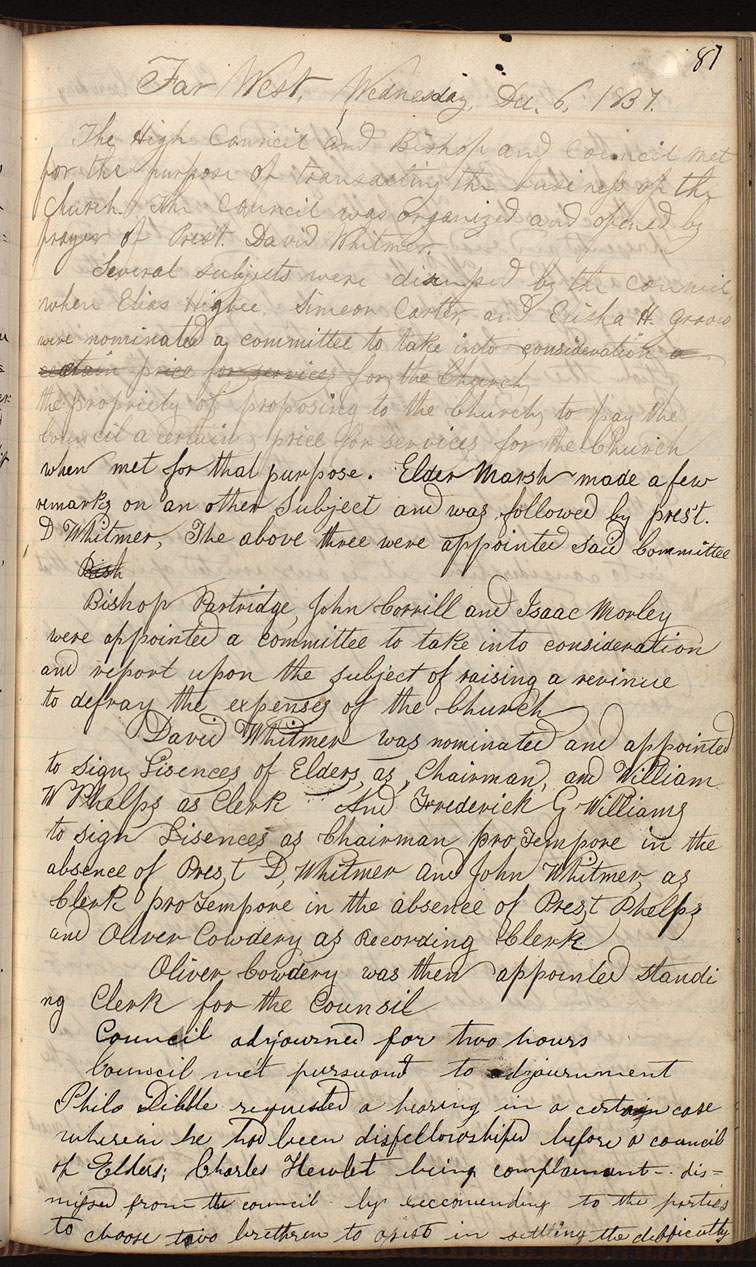 81
Far West, Wednesday, Dec. 6, 1837.
The High Council and Bishop and Council met
for the purpose of transacting the business of the
Church. The Council was organized and opened by
prayer of Prest. David Whitmer.
Several subjects were discussed by the council
when Elias Higbee, Simeon Carter, and Elisha H. Groves
were nominated a committee to take into consideration a
certain price for services for the Church
the propriety of proposing to the Church, to pay the
Council a certain price for services for the Church
when met for that purpose. Elder Marsh made a few
remarks on an other Subject and was followed by prest.
D Whitmer, The above three were appointed said Committee
Bish
Bishop Partridge, John Corrill and Isaac Morley
were appointed a committee to take into consideration
and report upon the subject of raising a revinue
to defray the expenses of the Church
David Whitmer was nominated and appointed
to sign Lisences of Elders, as, Chairman, and William
W Phelps as Clerk And Frederick G Williams
to sign Lisences as Chairman pro Tempore in the
absence of Pres,t D, Whitmer and John Whitmer, as
Clerk pro Tempore in the absence of Pres,t Phelps
and Oliver Cowdery as Recording Clerk
Oliver Cowdery was then appointed standi
ng Clerk for the Counsil
Council adjourned for two hours
Council met pursuant to adjournment
Philo Dibble requested a hearing in a certain case
wherein he had been disfellowshiped before a council
of Elders; Charles Hewlet being complainant - dis=
missed from the council by reccomending to the parties
to choose two brethren to assist in settling the difficulty